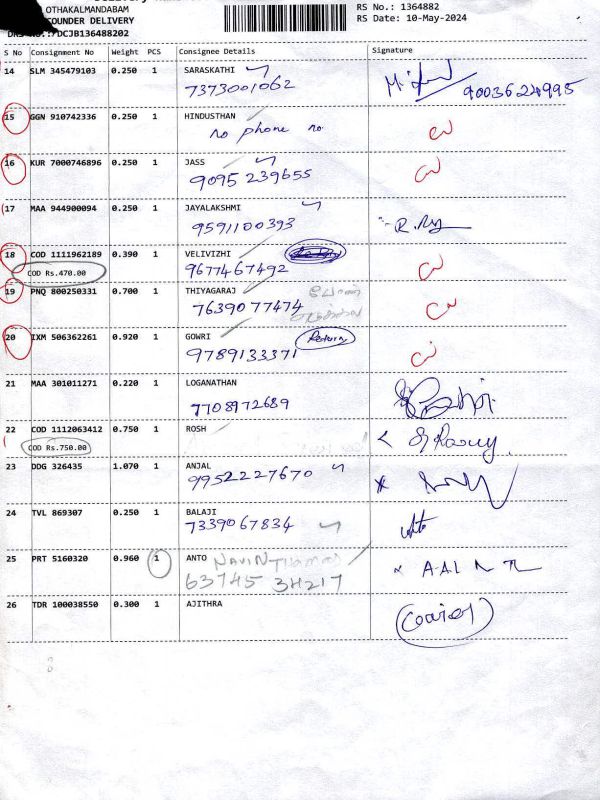 OTHAKALMANDABAM
FOUNDER DELIVERY
RS No.: 1364882
RS Date: 10-May-2024
DRS No.:/DCJB136488202
S No Consignment No Weight PCS Consignee Details Signature
14 SLM 345479103 0.250 1 SARASKATHI
7373001062
9003624995
15 GGN 910742336 0.250 1 HINDUSTHAN
no phone no
16 KUR 7000746896 0.250 1 JASS
9095 239655
17 MAA 944900094 0.250 1 JAYALAKSHMI
9591100393
18 COD 1111962189 0.390 1 VELIVIZHI
COD Rs.470.00 9677467492
19 PNQ 800250331 0.700 1 THIYAGARAJ
7639077474
20 IXM 506362261 0.920 1 GOWRI Return
9789133371
21 MAA 301011271 0.220 1 LOGANATHAN
7708972689
22 COD 1112063412 0.750 1 ROSH
COD Rs.750.00
23 DDG 326435 1.070 1 ANJAL
9952227670
24 TVL 869307 0.250 1 BALAJI
7339067834
25 PRT 5160320 0.960 1 ANTO NAVIN THOMAS
63745 34217
26 TDR 100038550 0.300 1 AJITHRA